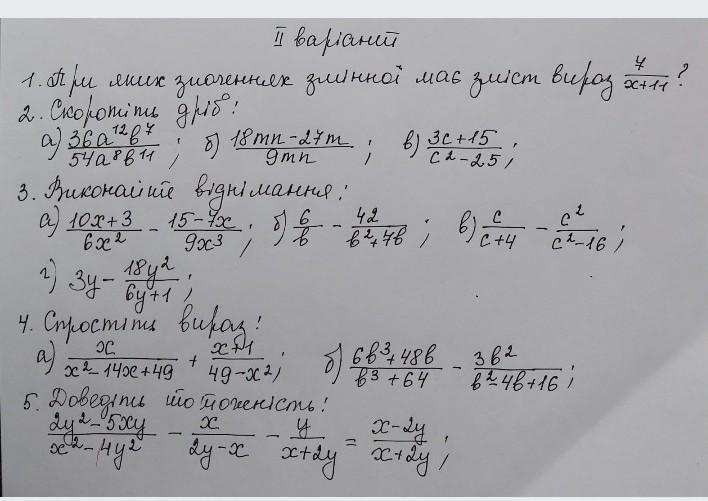 II варіант
1. При яких значеннях змінної має зміст вираз 7/(x+11)?
2. Скоротіть дріб:
а) 36a^12b^7/54a^8b^11; б) (18mn-27m)/9mn; в) (3c+15)/(c^2-25);
3. Виконайте віднімання:
а) (10x+3)/6x^2 - (15-7x)/9x^3; б) 6/b - 42/(b^2+7b); в) c/(c+4) - c^2/(c^2-16);
г) 3y - 18y^2/(6y+1);
4. Спростіть вираз:
а) x/(x^2-14x+49) + (x+1)/(49-x^2); б) (6b^3+48b)/(b^3+64) - 3b^2/(b^2-4b+16);
5. Доведіть тотожність:
(2y^2-5xy)/(x^2-4y^2) - x/(2y-x) - y/(x+2y) = (x-2y)/(x+2y);